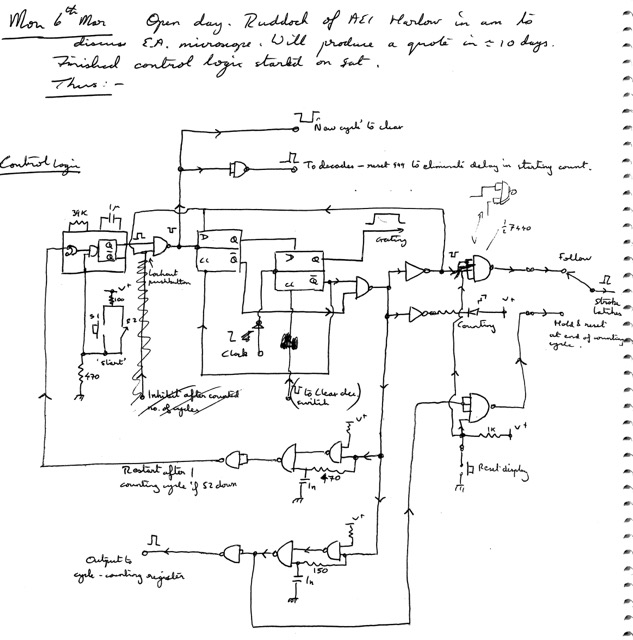 Mon 6th Mar Open day. Ruddock of AEI Harlow in am to
discuss E.A. microscope. Will produce a quote in ≈ 10 days.
Finished control logic started on Sat.
Thus:-
'New cycle' to clear
Control Logic
To decades - reset 999 to eliminate delay in starting count.
39K
1n
D Q
CC Q̄
D Q
CC Q̄
Gating
½ 7440
Follow
Strobe
latches
Hold & reset
at end of counting
cycle.
Lockout
pushbutton
V+
100
S1
S2
'Start'
470
Clock
Counting
V+
Inhibit after counted
no. of cycles
to clear dec.
switch
V+
1K
Reset display
V+
Restart after 1
counting cycle if S2 down
470
1n
V+
Output to
cycle-counting register
150
1n